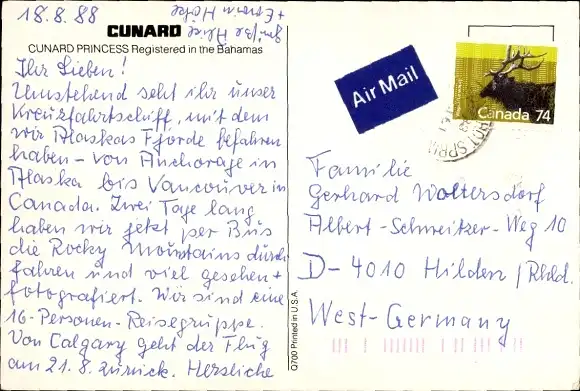 18.8.88
CUNARD
CUNARD PRINCESS Registered in the Bahamas
Ihr Lieben!
Umstehend seht ihr unser
Kreuzfahrtschiff, mit dem
wir Alaskas Fjorde befahren
haben - von Anchorage in
Alaska bis Vancouver in
Canada. Zwei Tage lang
haben wir jetzt per Bus
die Rocky Mountains durch
fahren und viel gesehen +
fotografiert. Wir sind eine
16-Personen-Reisegruppe.
Von Calgary geht der Flug
am 21.8. zurück. Herzliche
Grüße
+ Erwin
Q700 Printed in U.S.A.
Air Mail
Canada 74
Familie
Gerhard Woltersdorf
Albert-Schweitzer-Weg 10
D-4010 Hilden/Rhld.
West-Germany